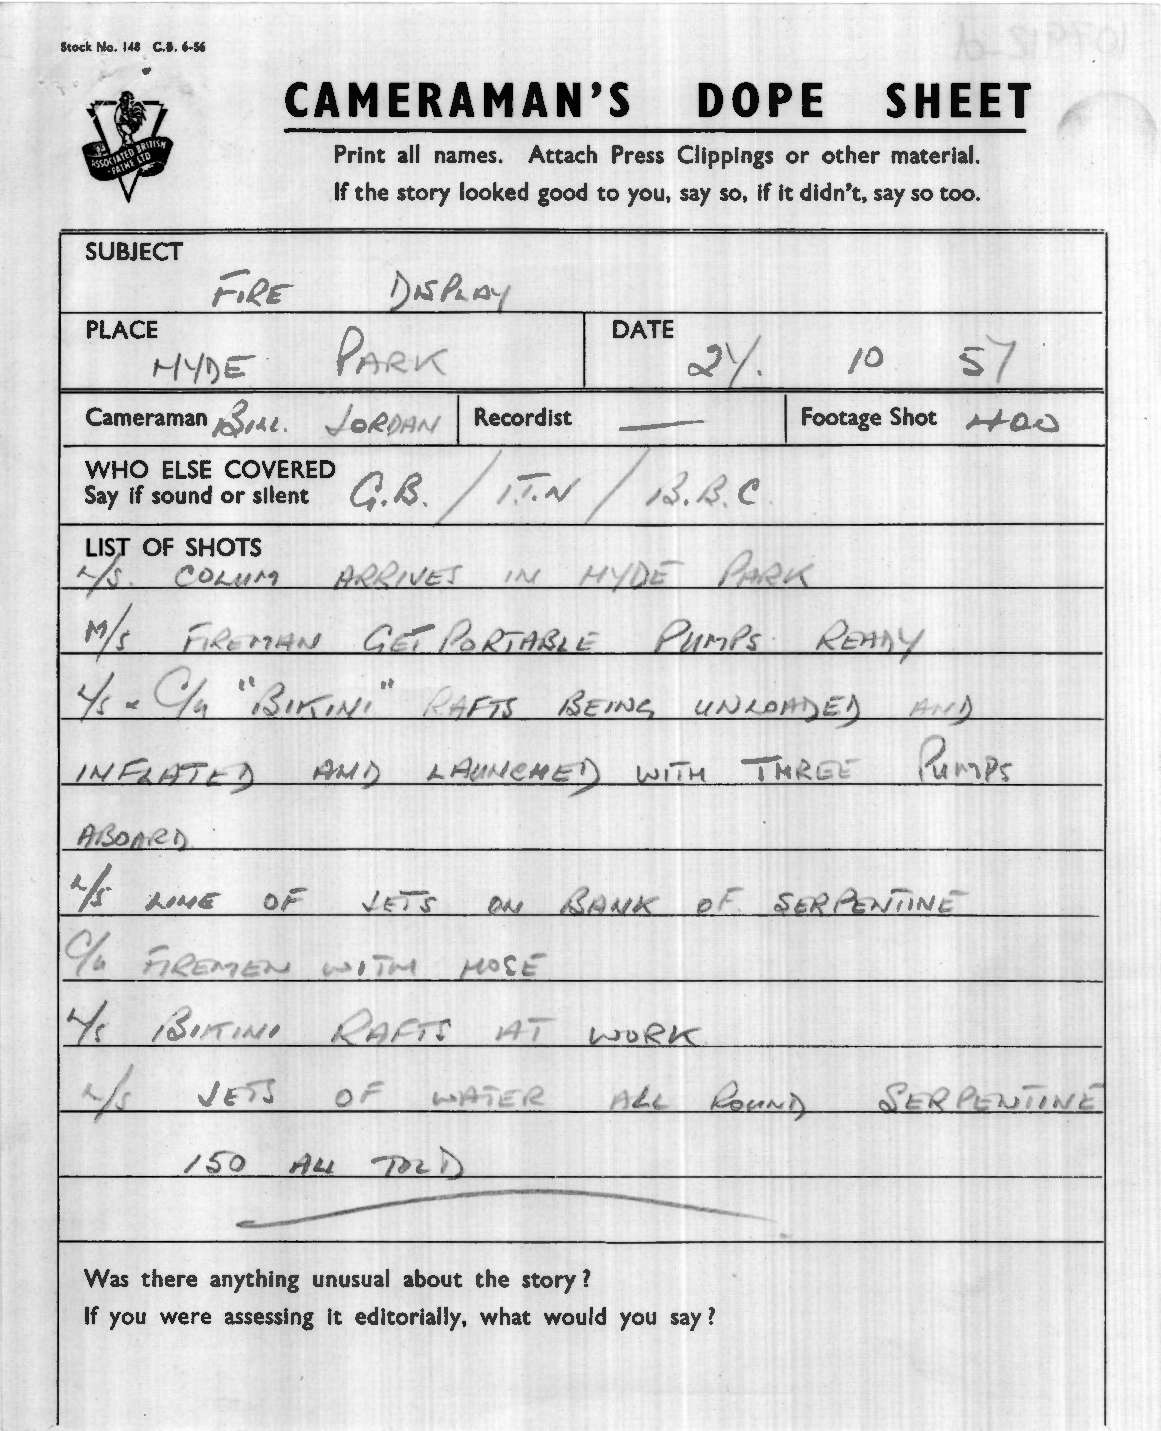 Stock No. 148 C.B. 6-56
ASSOCIATED BRITISH
PATHE LTD
CAMERAMAN'S DOPE SHEET
Print all names. Attach Press Clippings or other material.
If the story looked good to you, say so, if it didn't, say so too.
SUBJECT
FIRE DISPLAY
PLACE DATE
HYDE PARK 27. 10 57
Cameraman BILL JORDAN Recordist — Footage Shot 400
WHO ELSE COVERED
Say if sound or silent G.B. / I.T.N / B.B.C.
LIST OF SHOTS
L/S. COLUMN ARRIVES IN HYDE PARK
M/S FIREMAN GET PORTABLE PUMPS READY
L/S & C/U "BIKINI" RAFTS BEING UNLOADED AND
INFLATED AND LAUNCHED WITH THREE PUMPS
ABOARD
L/S LINE OF JETS ON BANK OF SERPENTINE
C/U FIREMEN WITH HOSE
L/S BIKINI RAFTS AT WORK
L/S JETS OF WATER ALL ROUND SERPENTINE
150 ALL TOLD
Was there anything unusual about the story?
If you were assessing it editorially, what would you say?